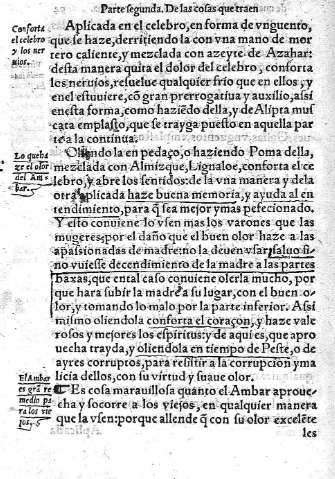 Parte segunda. De las cosas que traen
Conforta
el celebro
y los ner
uios.
Aplicada en el celebro, en forma de vnguento,
que se haze, derritiendola con vna mano de mor
tero caliente, y mezclada con azeyte de Azahar:
desta manera quita el dolor del celebro, conforta
los neruios, resuelue qualquier frio que en ellos, y
enel estuuiere, cõ gran prerrogatiua y auxilio, assi
en esta forma, como haziẽdo della, y de Alipta mus
cata emplasto, que se trayga puesto en aquella par
te a la continua.
Lo que ha
ze el olor
del Am-
bar.
Oliendola en pedaço, o haziendo Poma della,
mezclada con Almizque, Lignaloe, conforta el ce
lebro, y abre los sentidos: de la vna manera y de la
otra aplicada haze buena memoria, y ayuda al en
tendimiento, para q̃ sea mejor y mas pefecionado.
Y esto conuiene lo vsen mas los varones que las
mugeres: por el daño que el buen olor haze a las
apaisionadas de madre: no la deuen vsar, saluo si-
no vuiesse decendimiento de la madre a las partes
baxas, que en tal caso conuiene olerla mucho, por
que hara subir la madre a su lugar, con el buen o-
lor, y tomando lo malo por la parte inferior. Assi
mismo oliendola conforta el coraçon, y haze vale
rosos y mejores los espiritus: y de aqui es, que apro
uecha trayda, y oliendola en tiempo de Peste, o de
ayres corruptos, para resistir a la corrupcion y ma
licia dellos, con su virtud y suaue olor.
El Ambar
es grã re
medio pa
ra los vie
jos.
Es cosa marauillosa quanto el Ambar aproue-
cha y socorre a los viejos, en qualquier manera
que la vsen: porque allende q̃ con su olor excelẽte
les